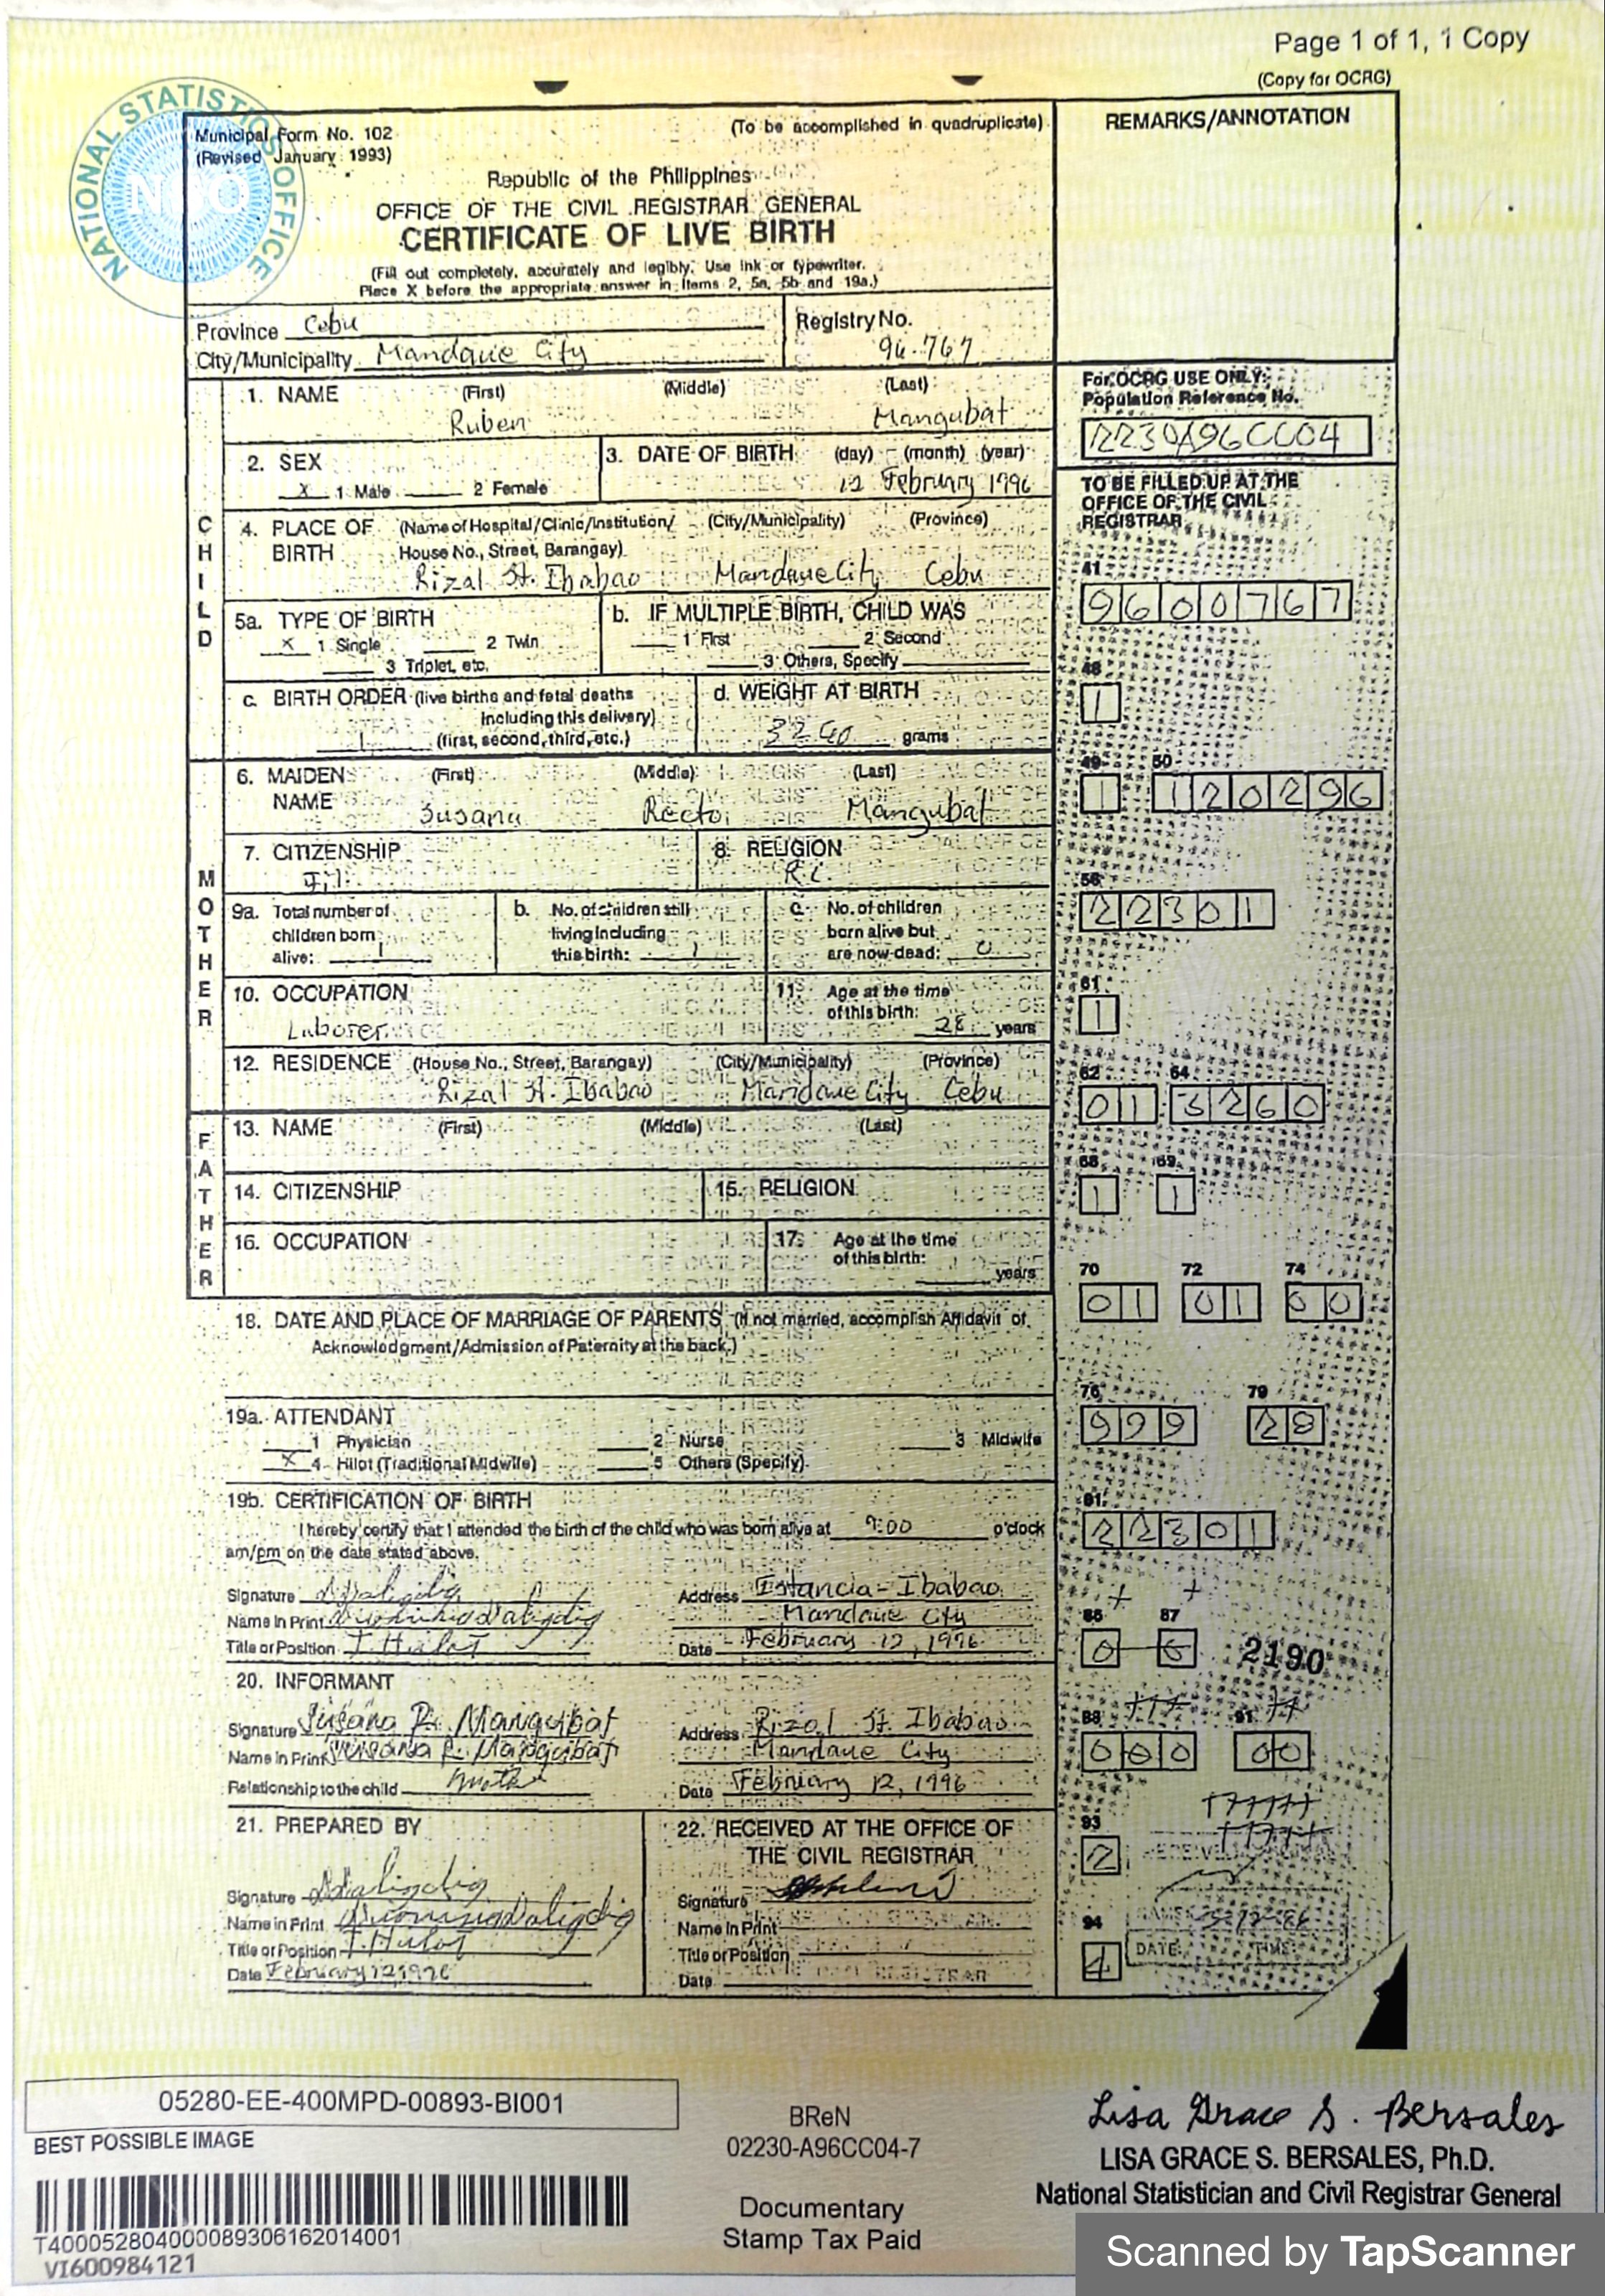 Page 1 of 1, 1 Copy
(Copy for OCRG)
NATIONAL STATISTICS OFFICE
NSO
Municipal Form No. 102
(Revised January 1993)
(To be accomplished in quadruplicate)
Republic of the Philippines
OFFICE OF THE CIVIL REGISTRAR GENERAL
CERTIFICATE OF LIVE BIRTH
(Fill out completely, accurately and legibly. Use ink or typewriter.
Place X before the appropriate answer in Items 2, 5a, 5b and 19a.)
REMARKS/ANNOTATION
Province Cebu
City/Municipality Mandaue City
Registry No.
96-767
For OCRG USE ONLY:
Population Reference No.
2230A96CC04
CHILD
1. NAME (First) (Middle) (Last)
Ruben Mangubat
2. SEX
X 1 Male 2 Female
3. DATE OF BIRTH (day) (month) (year)
12 February 1996
TO BE FILLED UP AT THE
OFFICE OF THE CIVIL
REGISTRAR
4. PLACE OF (Name of Hospital/Clinic/Institution/ (City/Municipality) (Province)
BIRTH House No., Street, Barangay)
Rizal St. Ibabao Mandaue City Cebu
41
9600767
5a. TYPE OF BIRTH
X 1 Single 2 Twin
3 Triplet, etc.
b. IF MULTIPLE BIRTH, CHILD WAS
1 First 2 Second
3 Others, Specify
48
1
c. BIRTH ORDER (live births and fetal deaths
including this delivery)
1 (first, second, third, etc.)
d. WEIGHT AT BIRTH
grams
MOTHER
6. MAIDEN (First) (Middle) (Last)
NAME
Susana Recto Mangubat
49 50
1 120296
7. CITIZENSHIP
Fil.
8. RELIGION
R.C.
56
22301
9a. Total number of
children born
alive: 1
b. No. of children still
living including
this birth: 1
c. No. of children
born alive but
are now dead: 0
10. OCCUPATION
Laborer
11. Age at the time
of this birth:
28 years
61
1
12. RESIDENCE (House No., Street, Barangay) (City/Municipality) (Province)
Rizal St. Ibabao Mandaue City Cebu
62 64
01 3260
FATHER
13. NAME (First) (Middle) (Last)
14. CITIZENSHIP
15. RELIGION
68 69
1 1
16. OCCUPATION
17. Age at the time
of this birth:
years
70 72 74
01 01 00
18. DATE AND PLACE OF MARRIAGE OF PARENTS (If not married, accomplish Affidavit of
Acknowledgment/Admission of Paternity at the back.)
76 79
999 28
19a. ATTENDANT
1 Physician 2 Nurse 3 Midwife
X 4 Hilot (Traditional Midwife) 5 Others (Specify)
19b. CERTIFICATION OF BIRTH
I hereby certify that I attended the birth of the child who was born alive at 9:00 o'clock
am/pm on the date stated above.
81
22301
Signature
Name in Print
Title or Position T. Hilot
Address Estancia - Ibabao
Mandaue City
Date February 12, 1996
86 87
2190
20. INFORMANT
Signature Susana R. Mangubat
Name in Print Susana R. Mangubat
Relationship to the child mother
Address Rizal St. Ibabao
Mandaue City
Date February 12, 1996
88 91
000 00
21. PREPARED BY
Signature
Name in Print
Title or Position T. Hilot
Date February 12, 1996
22. RECEIVED AT THE OFFICE OF
THE CIVIL REGISTRAR
Signature
Name in Print
Title or Position
Date
93
2
94
4
DATE: TIME:
05280-EE-400MPD-00893-BI001
BEST POSSIBLE IMAGE
T400052804000089306162014001
VI600984121
BReN
02230-A96CC04-7
Documentary
Stamp Tax Paid
Lisa Grace S. Bersales
LISA GRACE S. BERSALES, Ph.D.
National Statistician and Civil Registrar General
Scanned by TapScanner